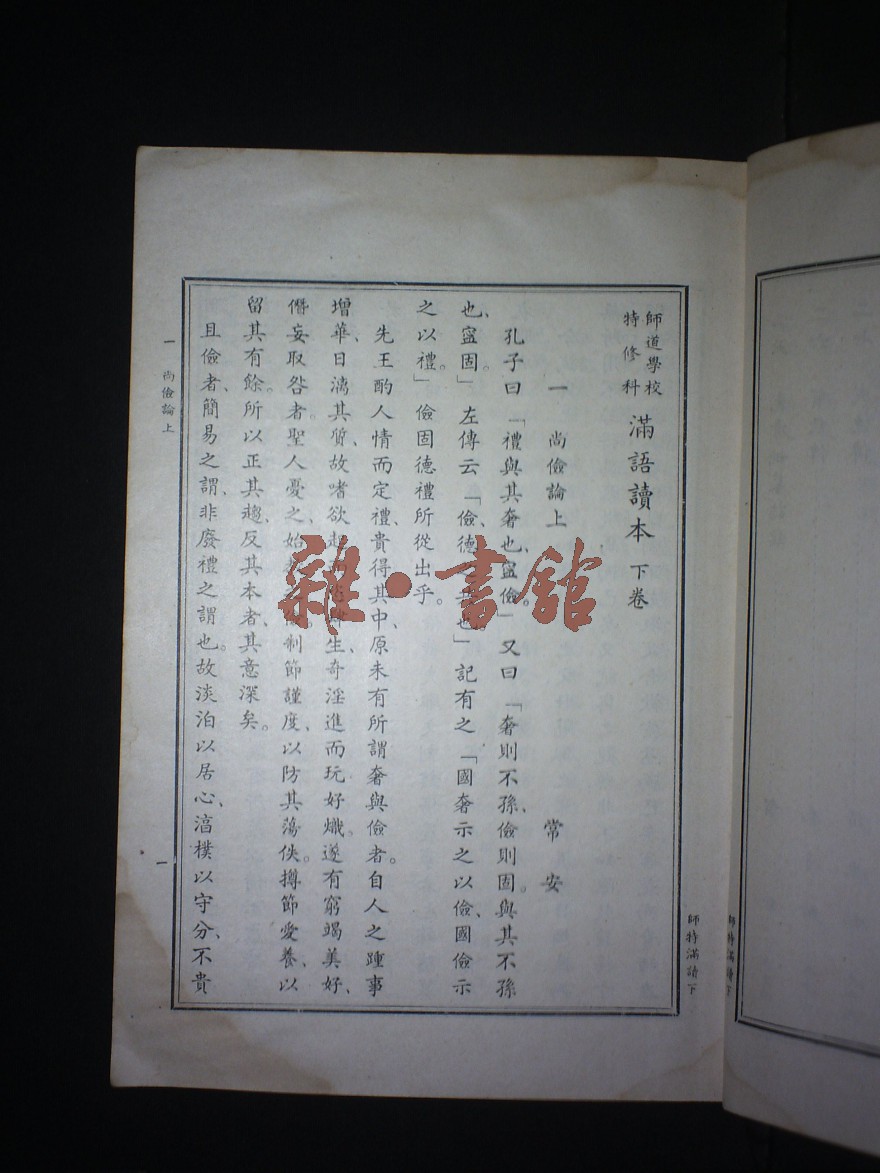 師道學校
特修科
滿語讀本 下卷
一 尚儉論上 常安
孔子曰「禮與其奢也、寧儉。」又曰「奢則不孫、儉則固。與其不孫
也、寧固。」左傳云「儉、德之共也」記有之「國奢示之以儉、國儉示
之以禮。」儉固德禮所從出乎。
先王酌人情而定禮、貴得其中、原未有所謂奢與儉者。自人之踵事
增華、日漓其質、故嗜欲起而生奇淫進而玩好熾、遂有窮竭美好、
僭妄取咎者。聖人憂之、始制節謹度、以防其蕩佚。撙節愛養、以
留其有餘。所以正其趨、反其本者、其意深矣。
且儉者、簡易之謂、非廢禮之謂也。故淡泊以居心、湻樸以守分、不貴
一 尚儉論上
一
師特滿讀下
師特滿讀下
雜·書館